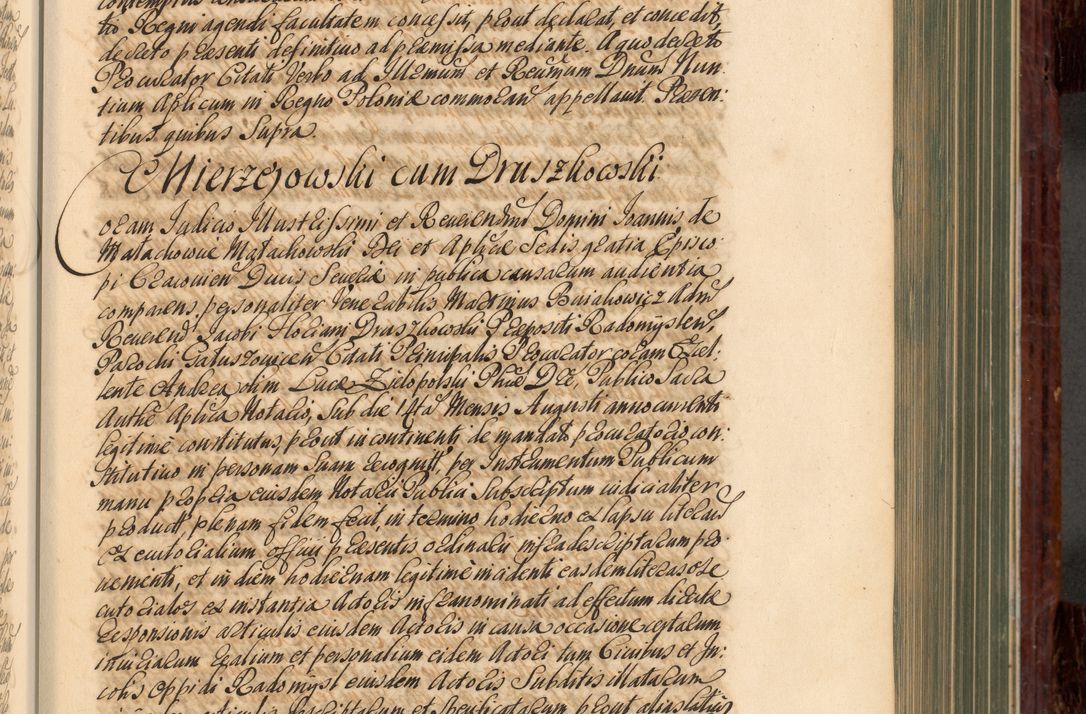 tio Regni agendi facultatem concessit, prout declarat, et concedit
decreto praesenti definitivo ad praemissa mediante. A quo decreto
Procurator Citati Verbo ad Illmum et Reumum Dnum Nun:
tium Aplicum in Regno Poloniæ commoran appellavit. Præsen:
tibus quibus Supra.
Mierzejowski cum Druszkowski
Coram Iudicio Illustrissimi et Reverendmi Domini Ioannis de
Małachowice Małachowski Dei et Aplicæ Sedis gratia Episco
pi Cracovien Ducis Severiæ in publica causarum audientia
comparens personaliter Venerabilis Martinus Baiakowicz Adm
Reverend Jacobi Floriani Druszkowski Præpositi Radomyslen,
Parochi Galuszovicen Citati Principalis Procurator coram Excel:
lente Andrea olim Lucæ Zielopolski Phiæ Dre, Publico Sacra
Authe Aplica Notario, Sub die 14ta Mensis Augusti anno currenti
legitime constitutus, prout in continenti de mandato procuratorio con:
stitutivo in personam Suam recognitt, per Instrumentum Publicum
manu propria eiusdem Notarii Publici Subscriptum iudicialiter
product plenam fidem fecit, in termino hodierno ex lapsu literar
Excutorialium officii præsentis ordinarii infradescriptarum pro:
venienti, et in diem hodiernam legitime incidenti easdem literas exe
cutoriales ex instantia Actoris infranominati ad effectum dicendæ
responsionis articulis eiusdem Actoris in causa occasione certarum
iniuriarum realium et personalium eidem Actori tum Civibus et In:
colis oppidi Radomysl eiusdem Actoris Subditis illatarum